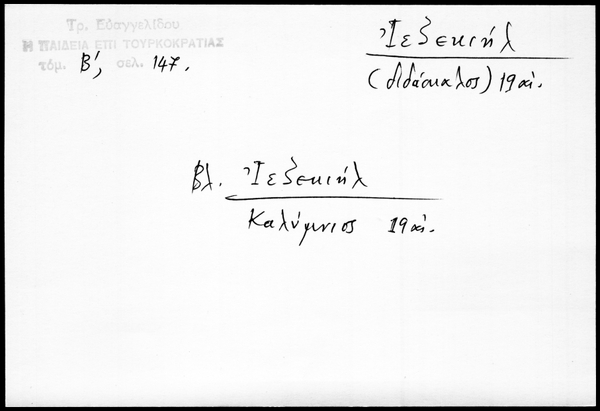 Τρ. Εὐαγγελίδου
Η ΠΑΙΔΕΙΑ ΕΠΙ ΤΟΥΡΚΟΚΡΑΤΙΑΣ
τόμ. Β', σελ. 147.
Ἰεζεκιήλ
(διδάσκαλος) 19 αἰ.
Βλ. Ἰεζεκιήλ
Καλύμνιος 19 αἰ.